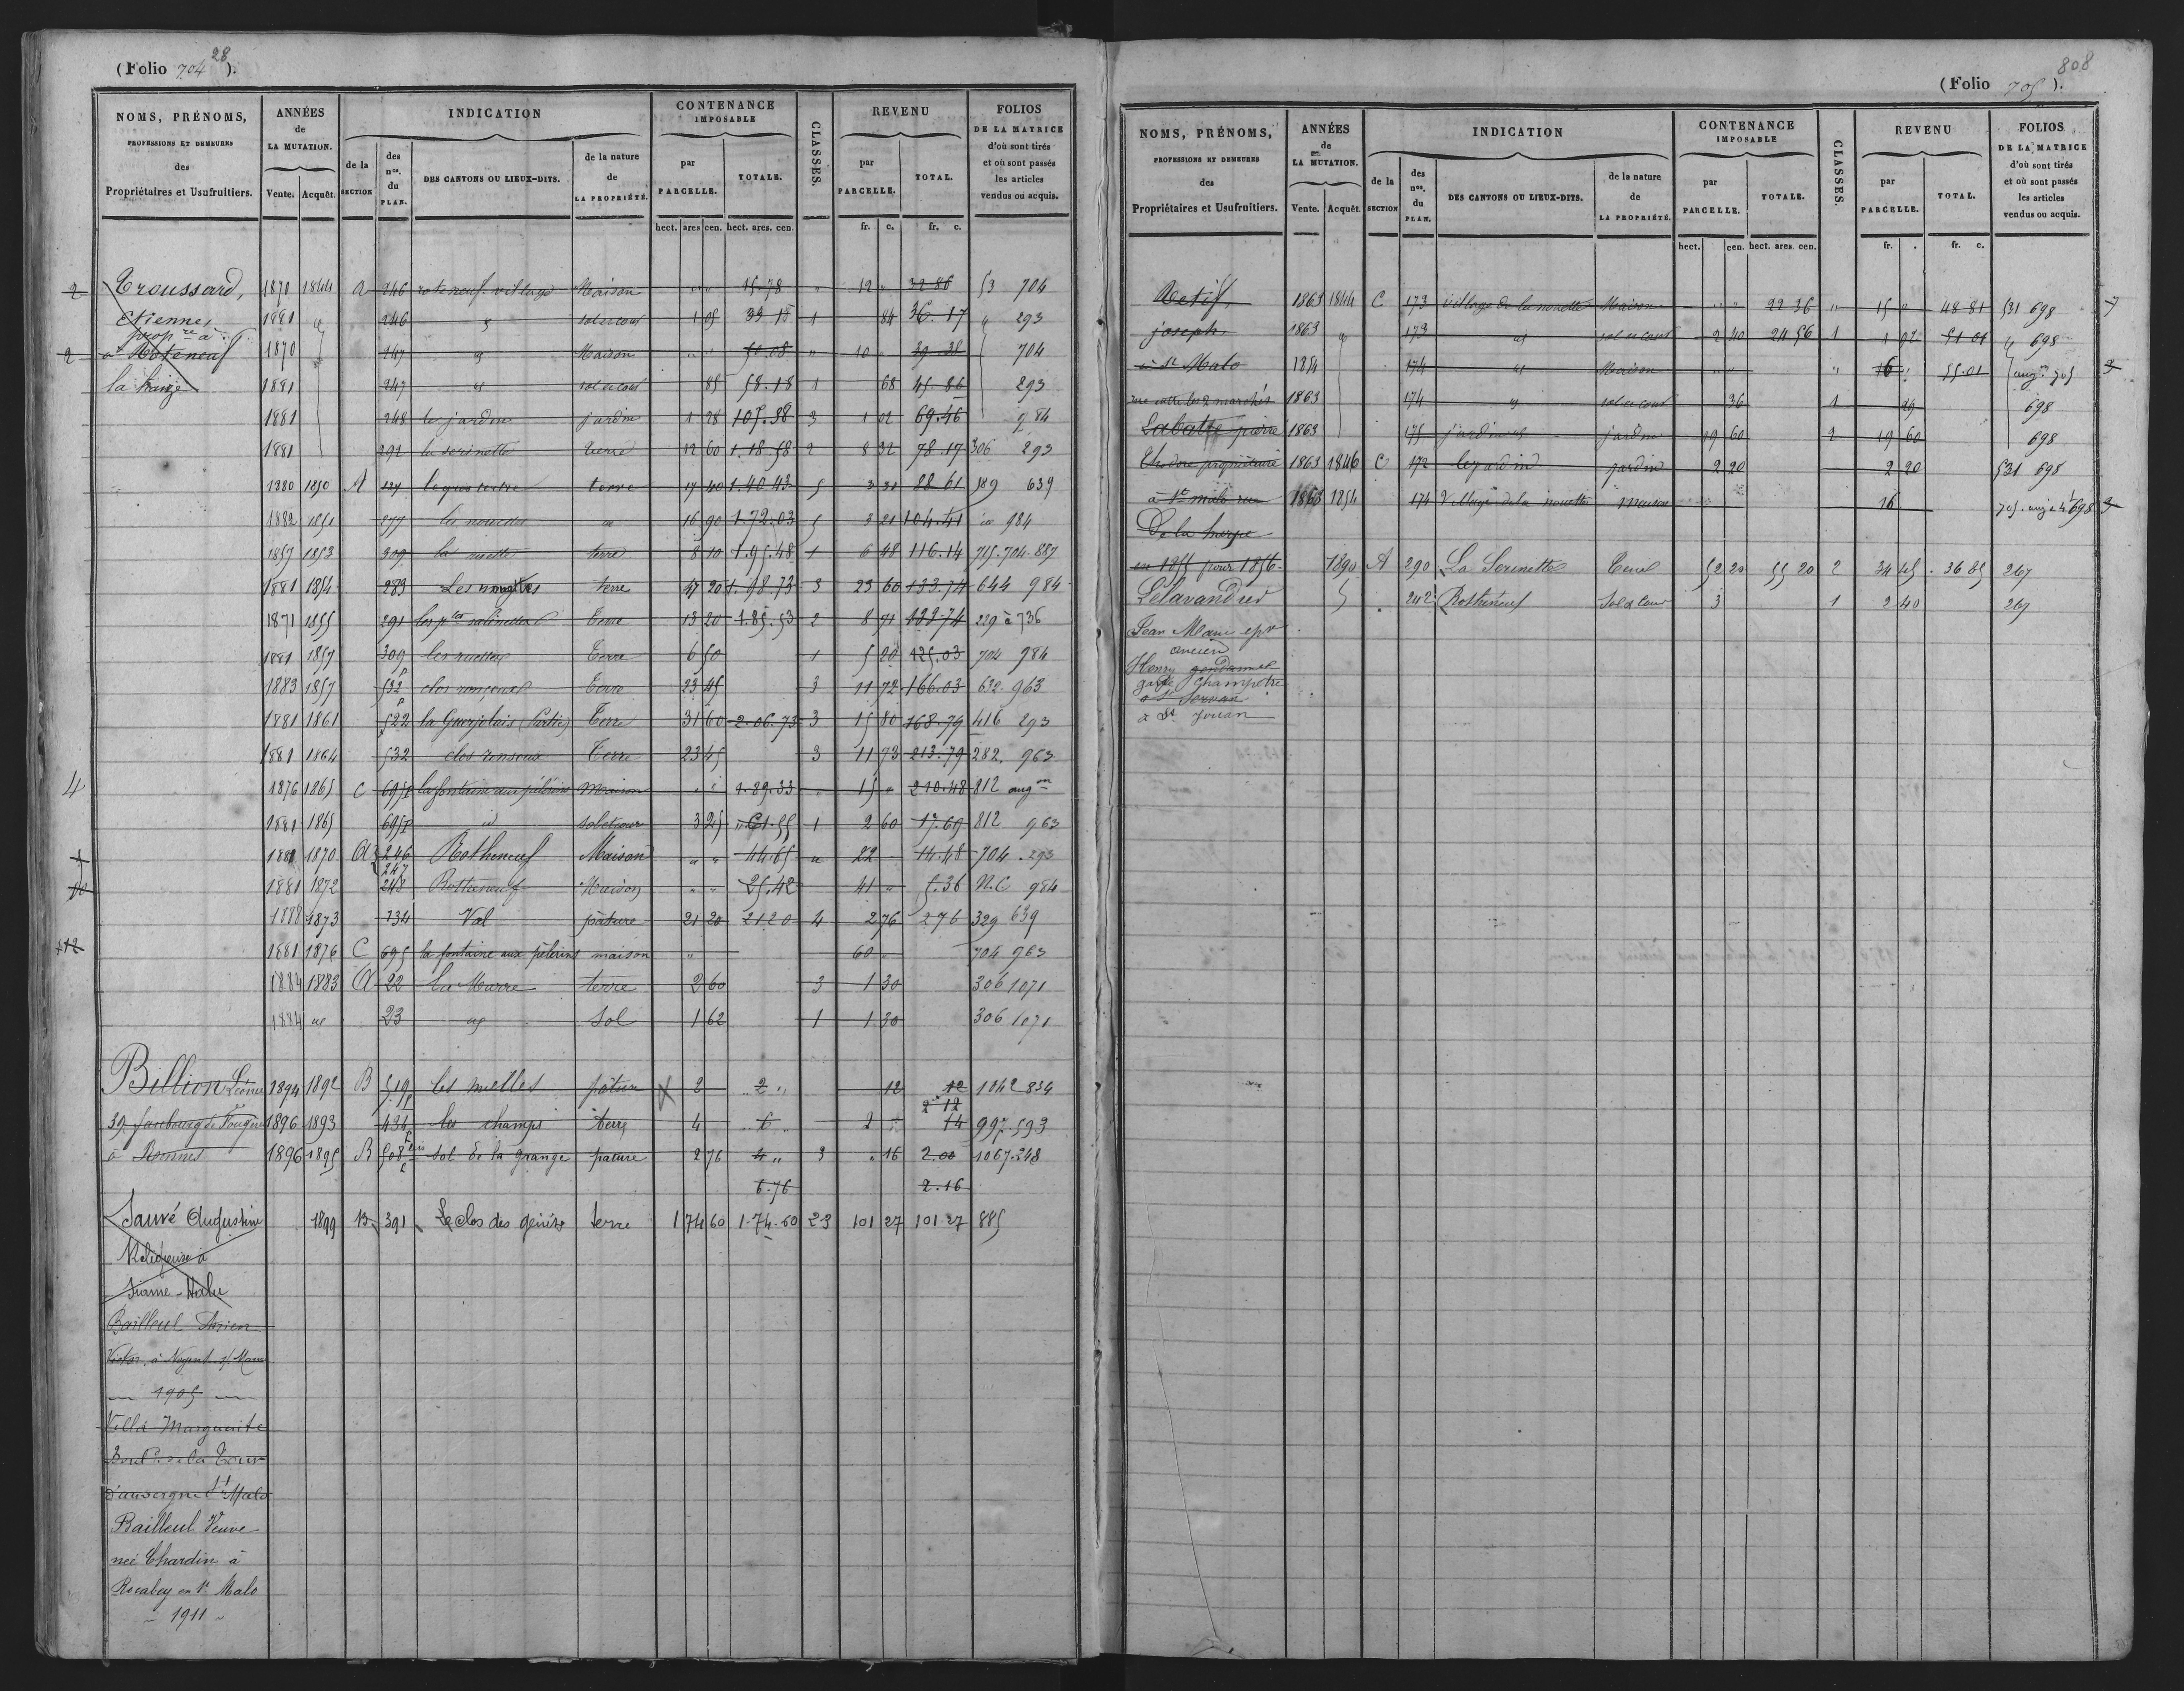 (Folio 704 28).
NOMS, PRÉNOMS,
PROFESSIONS ET DEMEURES
des
Propriétaires et Usufruitiers.
ANNÉES
de
LA MUTATION.
Vente. Acquêt.
INDICATION
de la
SECTION
des
nos.
du
PLAN.
DES CANTONS OU LIEUX-DITS.
de la nature
de
LA PROPRIÉTÉ.
CONTENANCE
IMPOSABLE
par
PARCELLE.
TOTALE.
hect. ares cen. hect. ares. cen.
CLASSES.
REVENU
par
PARCELLE.
TOTAL.
fr. c. fr. c.
FOLIOS
DE LA MATRICE
d'où sont tirés
et où sont passés
les articles
vendus ou acquis.
2 Troussard, 1870 1844 A 246 roteneuf village Maison " " 15.78 " 12 " 32 86 53 704
Etienne, 1881 246 sol et cour 1 05 33.18 1 84 36.17 293
propre à
2 Roteneuf 1870 247 Maison 50.08 " 10 " 29.38 704
la haize 1881 247 sol et cour 85 58.18 1 68 45.86 293
1881 248 le jardin jardin 1 28 107.38 3 1 02 69.46 984
1881 292 la serinette terre 12 60 1.18.58 2 8 32 78.17 306 293
1880 1850 A 137 le gros tertre terre 17 40 1.40.43 5 3 31 88 61 589 639
1882 1851 577 les nouettes 16 90 1.72.03 5 3 21 104.41 984
1857 1853 309 la ruette terre 8 10 1.95.48 1 6 48 116.14 715.704-887
1881 1854 283 Les nouettes terre 47 20 1.98.73 3 23 60 133.74 644 984
1871 1855 291 les ptes salinettes Terre 13 20 1.85.53 2 8 71 229 à 736
1881 1857 309 les ruettes Terre 6 50 1 5 20 125.03 704 984
1883 1857 532 p clos ronçoux Terre 23 45 3 11 72 166.03 632 963
1881 1861 522 p la Guerjolais (Partie) Terre 31 60 2.06.73 3 15 80 168.79 416 293
1881 1864 532 clos ronsoux Terre 23 45 3 11 73 213.79 282. 963
4 1876 1865 C 695p la fontaine aux pélérins Maison " " 1.89.33 " 15 " 210.48 812 augon
1881 1865 695p id sol et cour 3 25 61.55 1 2 60 17.69 812 963
1881 1870 A 246 247 Rotheneuf Maison " " 44.65 " 22 14.48 704 293
1881 1872 248 Rotteneuf Maison " " 25.42 41 " 5.36 N.C 984
1888 1873 134 Val pâture 21 20 21 20 4 2 76 2 76 329 639
+12 1881 1876 C 695 la fontaine aux pèlerins maison " 60 " 704 963
1884 1883 A 22 La Marre terre 2 60 3 1 30 306 1071
1884 23 Sol 1 62 1 1 30 306 1071
Billion Léonie 1894 1892 B 519p les mielles pâture 2 .. 2 " 12 12 1042 834
2 12
39 faubourg de Fougères 1896 1893 434p les champs terre 4 .. 6 .. 2 14 997.593
à Rennes 1896 1895 B 508 bis p sol de la grange pature 2 76 4 " 3 " 16 2.00 1067.248
6.76 2.16
Sauvé Augustine 1899 B 391 Le clos des genêts terre 1 74 60 1.74.60 2 3 101 27 101.27 885
Religieuse à
Bailleul
Victor, à Nogent s/ Marne
1905
Villa Marguerite
Bould de la Tour
d'auvergne St Malo
Bailleul Veuve
née Chardin à
Rocabey en St Malo
1911
(Folio 705). 808
NOMS, PRÉNOMS,
PROFESSIONS ET DEMEURES
des
Propriétaires et Usufruitiers.
ANNÉES
de
LA MUTATION.
Vente. Acquêt.
INDICATION
de la
SECTION
des
nos.
du
PLAN.
DES CANTONS OU LIEUX-DITS.
de la nature
de
LA PROPRIÉTÉ.
CONTENANCE
IMPOSABLE
par
PARCELLE.
TOTALE.
hect. cen. hect. ares. cen.
CLASSES.
REVENU
par
PARCELLE.
TOTAL.
fr. . fr. c.
FOLIOS
DE LA MATRICE
d'où sont tirés
et où sont passés
les articles
vendus ou acquis.
Retif, 1863 1844 C 173 village de la nouette Maison " " 22 36 " 15 " 48 81 531 698
joseph. 1863 173 sol et cour 2 40 24 56 1 1 92 51 01 698
à St Malo 1854 174 Maison " " " 16 " 55.01 augon 705
rue entre les 2 marchés 1863 174 sol et cour 36 1 29 698
Labatte pierre 1863 175 jardin jardin 19 60 2 19 60 698
théodore propriétaire 1863 1846 C 172 le jardin jardin 2 20 2 20 531 698
à St malo rue 1863 1854 174 Village de la nouette maison " 16
De la harpe
en 1855 pour 1856. 1890 A 290 La Serinette Terre 52 20 55 20 2 34 45 36 85 267
Lelavandier 242 Rothéneuf Sol & Cour 3 1 2 40 267
Jean Marie epx
ancien
Henry gendarme
garde champêtre
à St Servan
à St Jouan